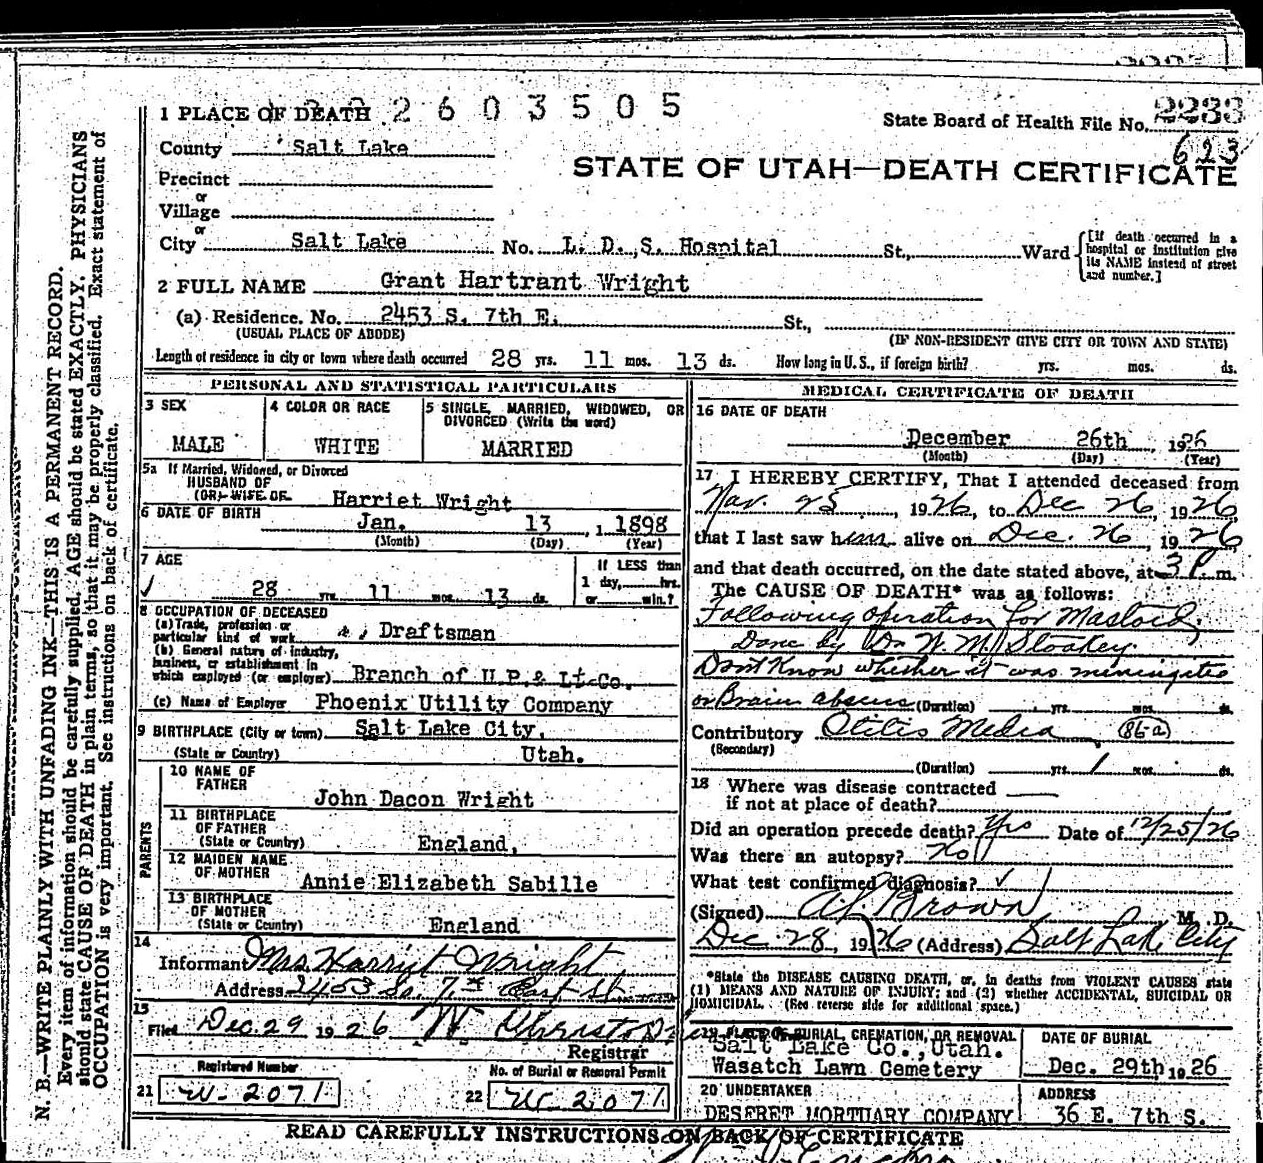 2233
1 PLACE OF DEATH 2 6 0 3 5 0 5
State Board of Health File No.
623
County Salt Lake
STATE OF UTAH—DEATH CERTIFICATE
Precinct
or
Village
or
City Salt Lake No. L. D. S. Hospital St., Ward
[If death occurred in a hospital or institution give its NAME instead of street and number.]
2 FULL NAME Grant Hartrant Wright
(a) Residence. No. 2453 S. 7th E. St.,
(USUAL PLACE OF ABODE) (IF NON-RESIDENT GIVE CITY OR TOWN AND STATE)
Length of residence in city or town where death occurred 28 yrs. 11 mos. 13 ds. How long in U. S., if foreign birth? yrs. mos. ds.
PERSONAL AND STATISTICAL PARTICULARS
3 SEX 4 COLOR OR RACE 5 SINGLE, MARRIED, WIDOWED, OR
DIVORCED (Write the word)
MALE WHITE MARRIED
5a If Married, Widowed, or Divorced
HUSBAND OF
(OR) WIFE OF Harriet Wright
6 DATE OF BIRTH Jan. 13, 1898
(Month) (Day) (Year)
7 AGE If LESS than
28 yrs 11 mos. 13 ds. 1 day, hrs.
or min.?
8 OCCUPATION OF DECEASED
(a) Trade, profession or
particular kind of work Draftsman
(b) General nature of industry,
business, or establishment in
which employed (or employer) Branch of U.P.& Lt.Co.
(c) Name of Employer Phoenix Utility Company
9 BIRTHPLACE (City or town) Salt Lake City,
(State or Country) Utah.
PARENTS
10 NAME OF
FATHER John Dacon Wright
11 BIRTHPLACE
OF FATHER
(State or Country) England,
12 MAIDEN NAME
OF MOTHER Annie Elizabeth Sabille
13 BIRTHPLACE
OF MOTHER
(State or Country) England
14
Informant Mrs Harriet Wright
Address 2453 So. 7th East St.
15
Filed Dec. 29 1926
Registrar
Registered Number No. of Burial or Removal Permit
21 W-2071 22 W-2071
MEDICAL CERTIFICATE OF DEATH
16 DATE OF DEATH
December 26th, 1926
(Month) (Day) (Year)
17 I HEREBY CERTIFY, That I attended deceased from
Nov. 25, 1926, to Dec 26, 1926,
that I last saw him alive on Dec. 26, 1926
and that death occurred, on the date stated above, at 3 P. m.
The CAUSE OF DEATH* was as follows:
Following operation for Mastoid,
Done by Dr W. M. Stookey.
Dont Know whether it was miningites
or Brain absess (Duration) yrs. mos. ds.
Contributory Otitis Media (86a)
(Secondary)
(Duration) yrs. 1 mos. ds.
18 Where was disease contracted
if not at place of death?
Did an operation precede death? Yes Date of 12/25/26
Was there an autopsy? No
What test confirmed diagnosis? ✓
(Signed) Brown M. D.
Dec. 28, 1926 (Address) Salt Lake City
*State the DISEASE CAUSING DEATH, or, in deaths from VIOLENT CAUSES state
(1) MEANS AND NATURE OF INJURY; and (2) whether ACCIDENTAL, SUICIDAL OR
HOMICIDAL. (See reverse side for additional space.)
19 PLACE OF BURIAL, CREMATION, OR REMOVAL DATE OF BURIAL
Salt Lake Co., Utah.
Wasatch Lawn Cemetery Dec. 29th 1926
20 UNDERTAKER ADDRESS
DESERET MORTUARY COMPANY 36 E. 7th S.
READ CAREFULLY INSTRUCTIONS ON BACK OF CERTIFICATE
N. B.—WRITE PLAINLY WITH UNFADING INK—THIS IS A PERMANENT RECORD.
Every item of information should be carefully supplied. AGE should be stated EXACTLY. PHYSICIANS
should state CAUSE OF DEATH in plain terms, so that it may be properly classified. Exact statement of
OCCUPATION is very important. See instructions on back of certificate.